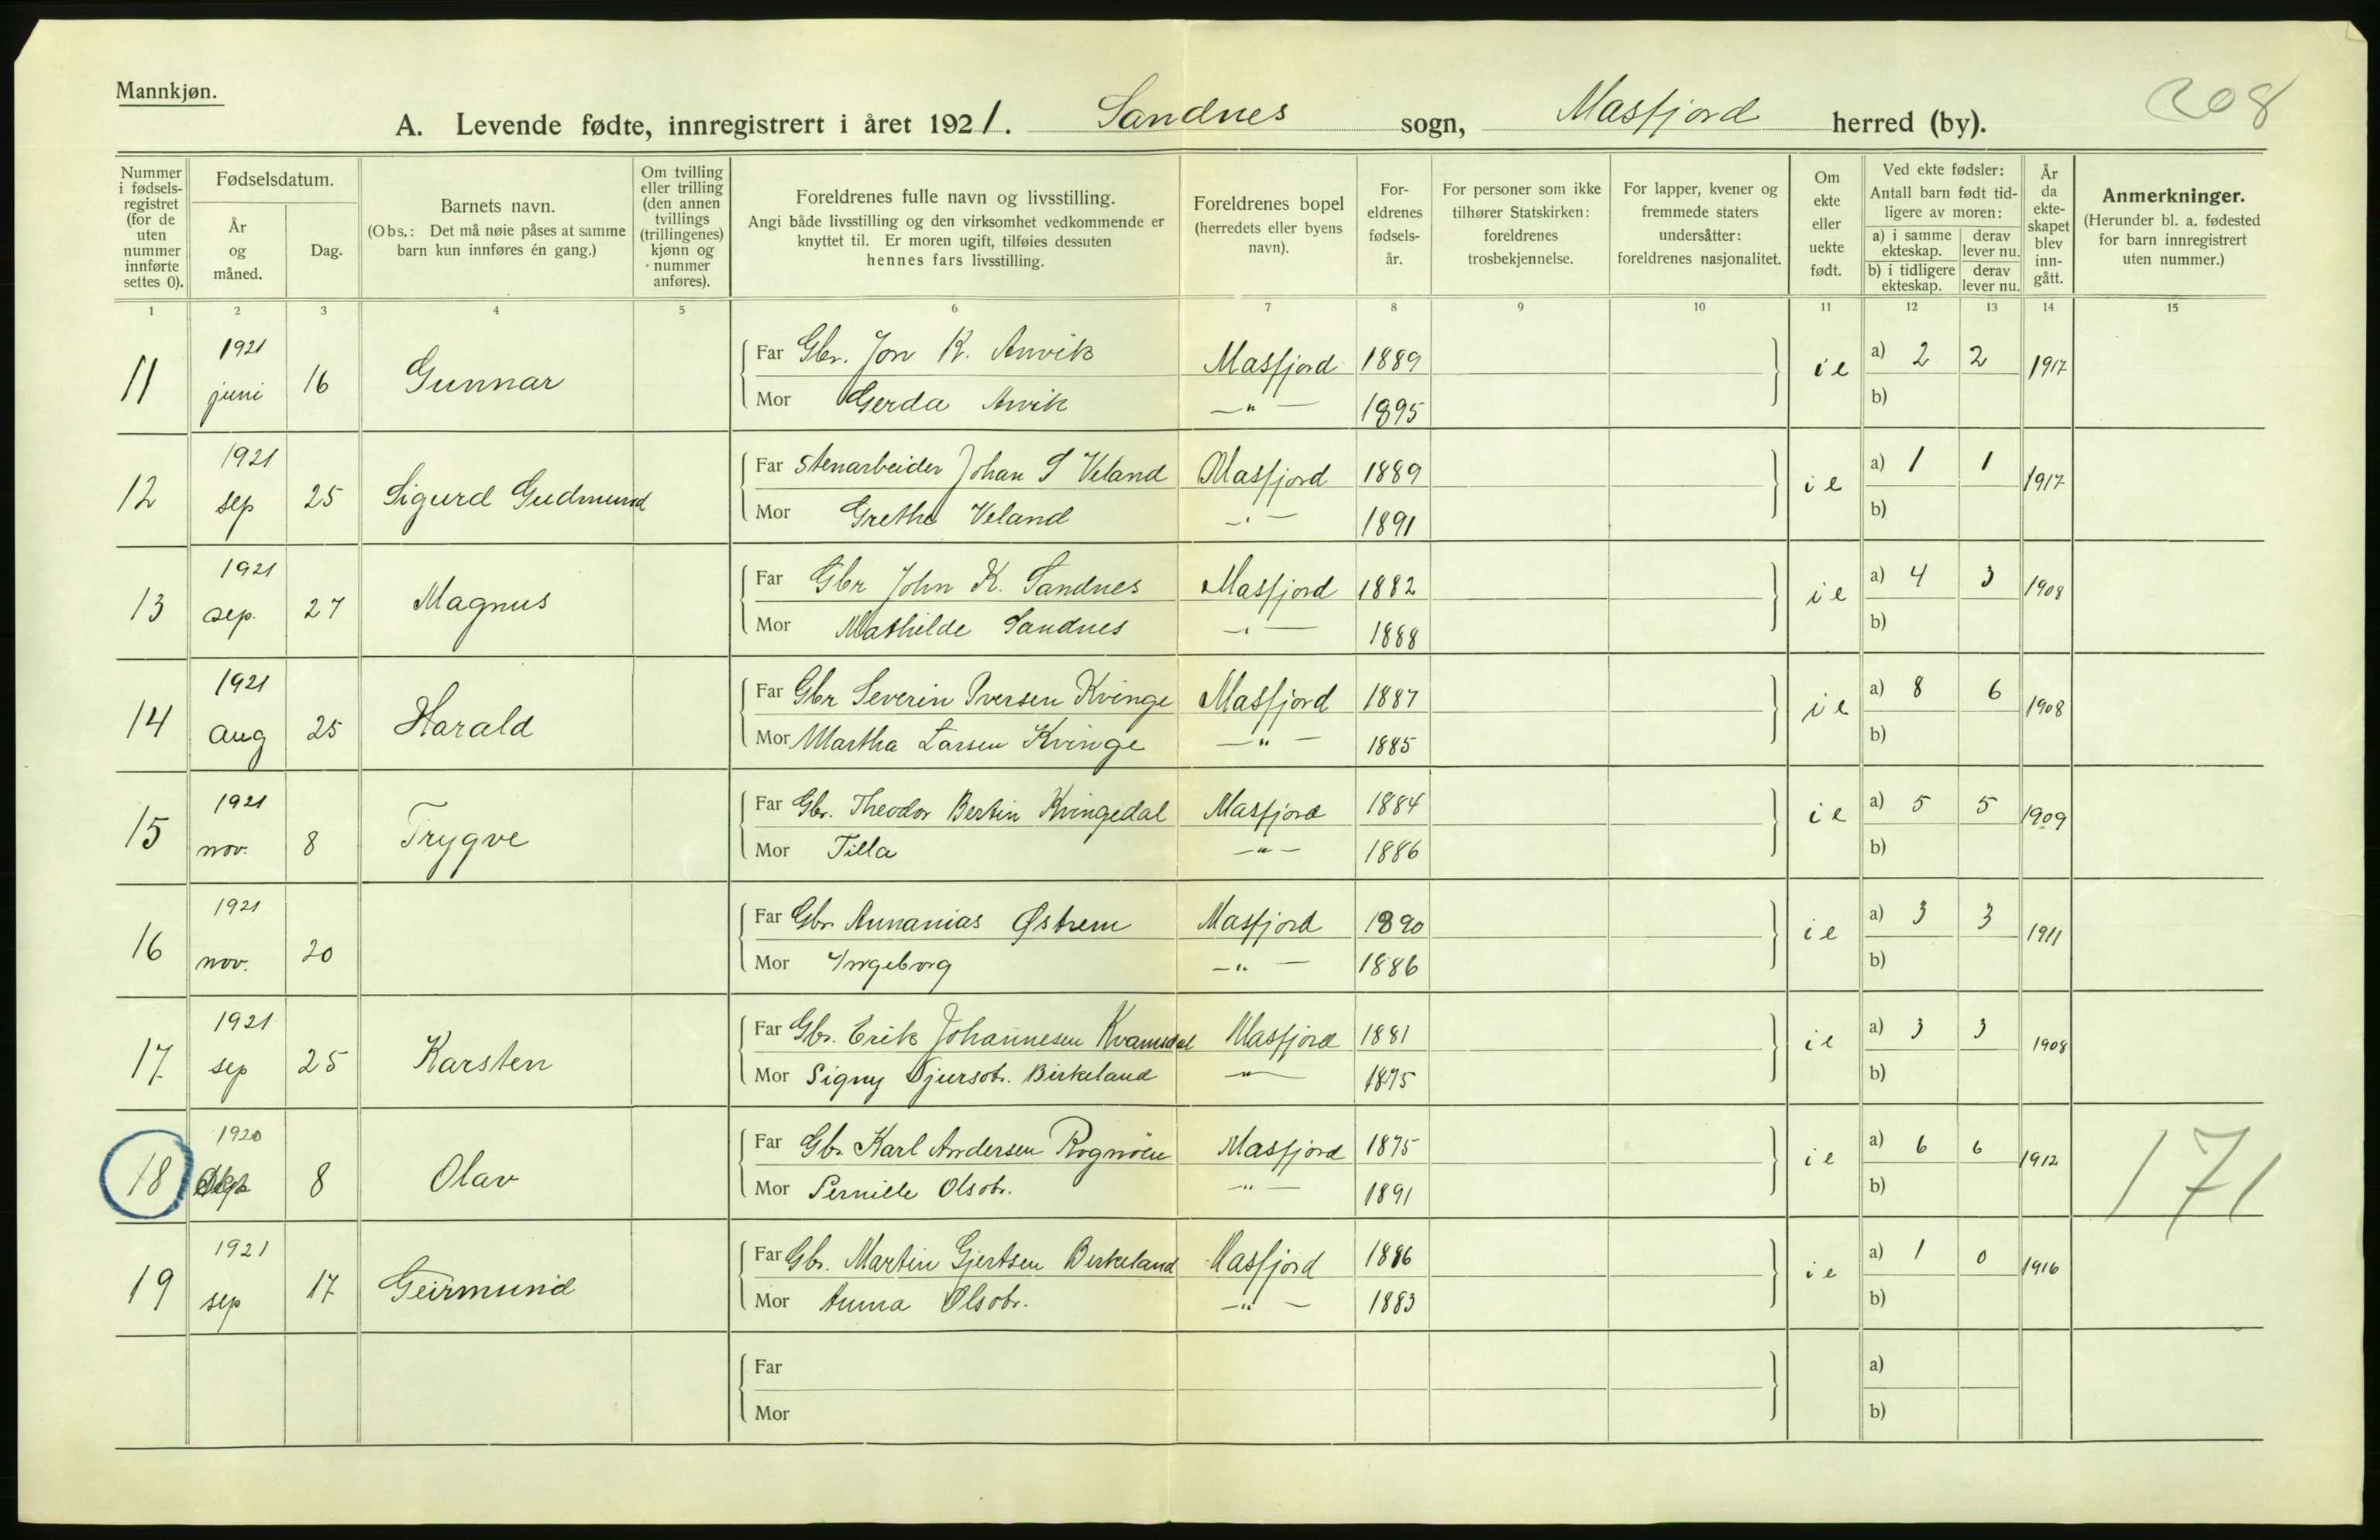 Mannkjøn.
208
A. Levende fødte, innregistrert i året 1921. Sandnes sogn, Masfjord herred (by).
Nummer i fødselsregistret (for de uten nummer innførte settes 0).
Fødselsdatum.
År og måned.
Dag.
Barnets navn.
(Obs.: Det må nøie påses at samme barn kun innføres én gang.)
Om tvilling eller trilling (den annen tvillings (trillingenes) kjønn og nummer anføres).
Foreldrenes fulle navn og livsstilling.
Angi både livsstilling og den virksomhet vedkommende er knyttet til. Er moren ugift, tilføies dessuten hennes fars livsstilling.
Foreldrenes bopel (herredets eller byens navn).
Foreldrenes fødselsår.
For personer som ikke tilhører Statskirken: foreldrenes trosbekjennelse.
For lapper, kvener og fremmede staters undersåtter: foreldrenes nasjonalitet.
Om ekte eller uekte født.
Ved ekte fødsler:
Antall barn født tidligere av moren:
a) i samme ekteskap. derav lever nu.
b) i tidligere ekteskap. derav lever nu.
År da ekteskapet blev inngått.
Anmerkninger.
(Herunder bl. a. fødested for barn innregistrert uten nummer.)
1 2 3 4 5 6 7 8 9 10 11 12 13 14 15
11 1921 juni 16 Gunnar Far Gbr. Jon K. Anvik Masfjord 1889 ie a) 2 2 1917
Mor Gerda Anvik —"— 1895 b)
12 1921 sep 25 Sigurd Gudmund Far Stenarbeider Johan S Veland Masfjord 1889 ie a) 1 1 1917
Mor Grethe Veland —"— 1891 b)
13 1921 sep. 27 Magnus Far Gbr John K. Sandnes Masfjord 1882 ie a) 4 3 1908
Mor Mathilde Sandnes —"— 1888 b)
14 1921 aug 25 Harald Far Gbr Severin Iversen Kvinge Masfjord 1887 ie a) 8 6 1908
Mor Martha Larsen Kvinge —"— 1885 b)
15 1921 nov. 8 Trygve Far Gbr. Theodor Bertin Kvingedal Masfjord 1884 ie a) 5 5 1909
Mor Tilla —"— 1886 b)
16 1921 nov. 20 Far Gbr Annanias Østrem Masfjord 1890 ie a) 3 3 1911
Mor Ingeborg —"— 1886 b)
17 1921 sep 25 Karsten Far Gbr. Erik Johannesen Kvamsdal Masfjord 1881 ie a) 3 3 1908
Mor Signy Gjersdtr. Birkeland —"— 1875 b)
18 1920 8 Olav Far Gbr Karl Andersen Rognöen Masfjord 1875 ie a) 6 6 1912 171
Mor Pernille Olsdtr. —"— 1891 b)
19 1921 sep 17 Geirmund Far Gbr. Martin Gjertsen Birkeland Masfjord 1886 ie a) 1 0 1916
Mor Anna Olsdtr. —"— 1883 b)
Far a)
Mor b)